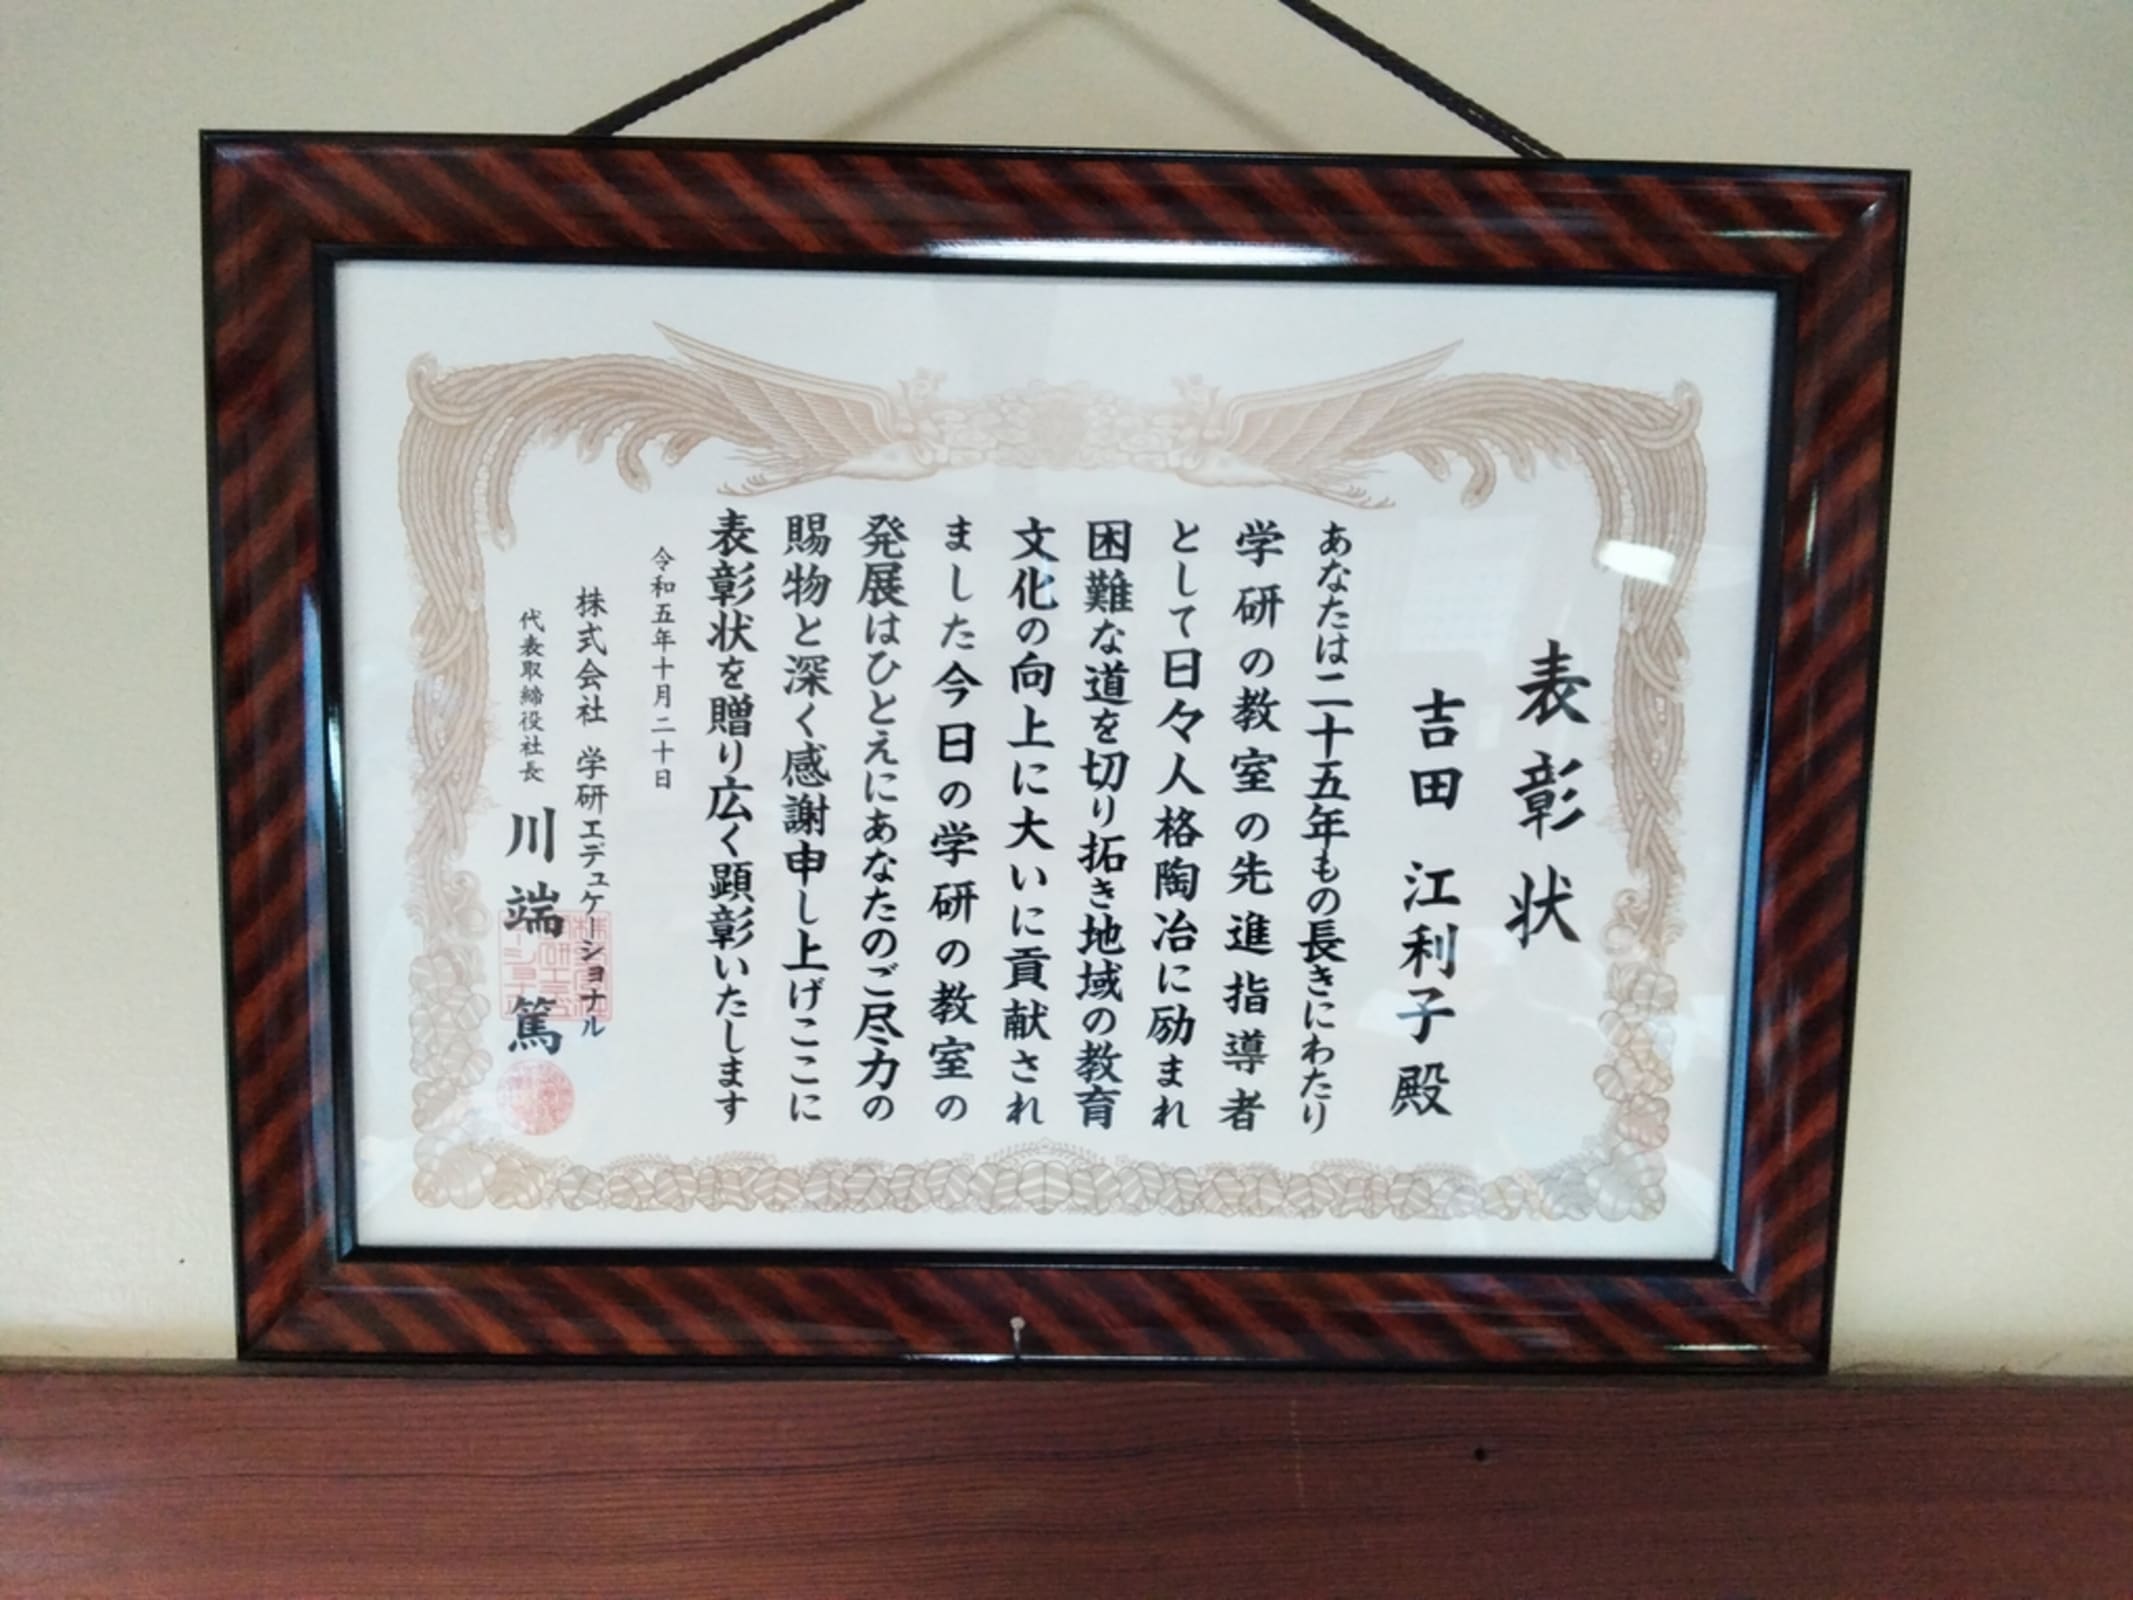 表彰状
吉田 江利子 殿
あなたは二十五年もの長きにわたり
学研の教室の先進指導者
として日々人格陶冶に励まれ
困難な道を切り拓き地域の教育
文化の向上に大いに貢献され
ました今日の学研の教室の
発展はひとえにあなたのご尽力の
賜物と深く感謝申し上げここに
表彰状を贈り広く顕彰いたします
令和五年十月二十日
株式会社 学研エデュケーショナル
代表取締役社長 川端 篤